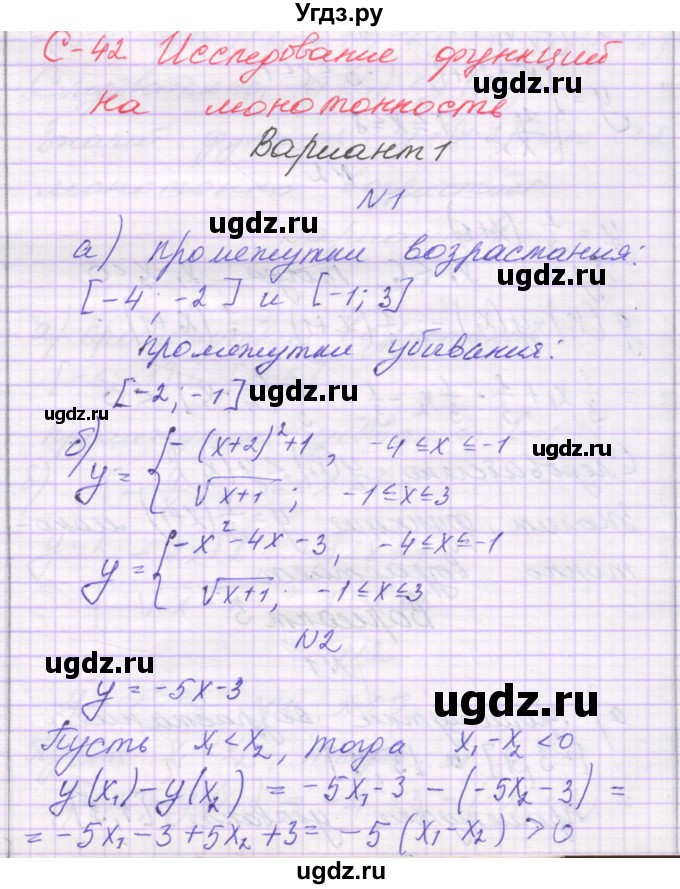 Угдз.ру
С-42. Исследование функций
на монотонность
Вариант 1
ugdz.ru
N1
ugdz.ru
а) промежутки возрастания:
[-4; -2] и [-1; 3]
ugdz.ru
промежутки убывания:
[-2; -1]
ugdz.ru
ugdz.ru
б) y = { -(x+2)²+1, -4≤x≤-1
√(x+1); -1≤x≤3
ugdz.ru
y = { -x²-4x-3, -4≤x≤-1
√(x+1); -1≤x≤3
N2
ugdz.ru
y = -5x-3
ugdz.ru
Пусть x₁<x₂, тогда x₁-x₂<0
y(x₁)-y(x₂) = -5x₁-3-(-5x₂-3) =
= -5x₁-3+5x₂+3 = -5(x₁-x₂) > 0
ugdz.ru